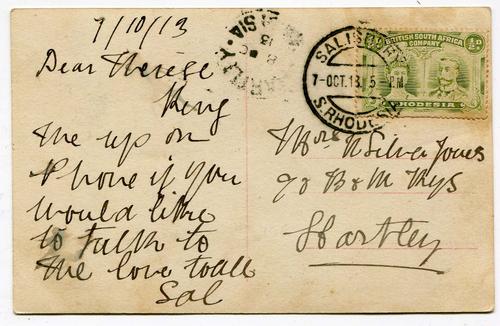 7/10/13
Dear Therese
Ring
me up on
Phone if you
would like
to talk to
me love to all
Sal
SALISBURY
7-OCT.13. 5 PM
S.RHODESIA
BRITISH SOUTH AFRICA
COMPANY
½d
RHODESIA
HARTLEY
Mrs N Silva Jones
c/o B & M Rlys
Hartley